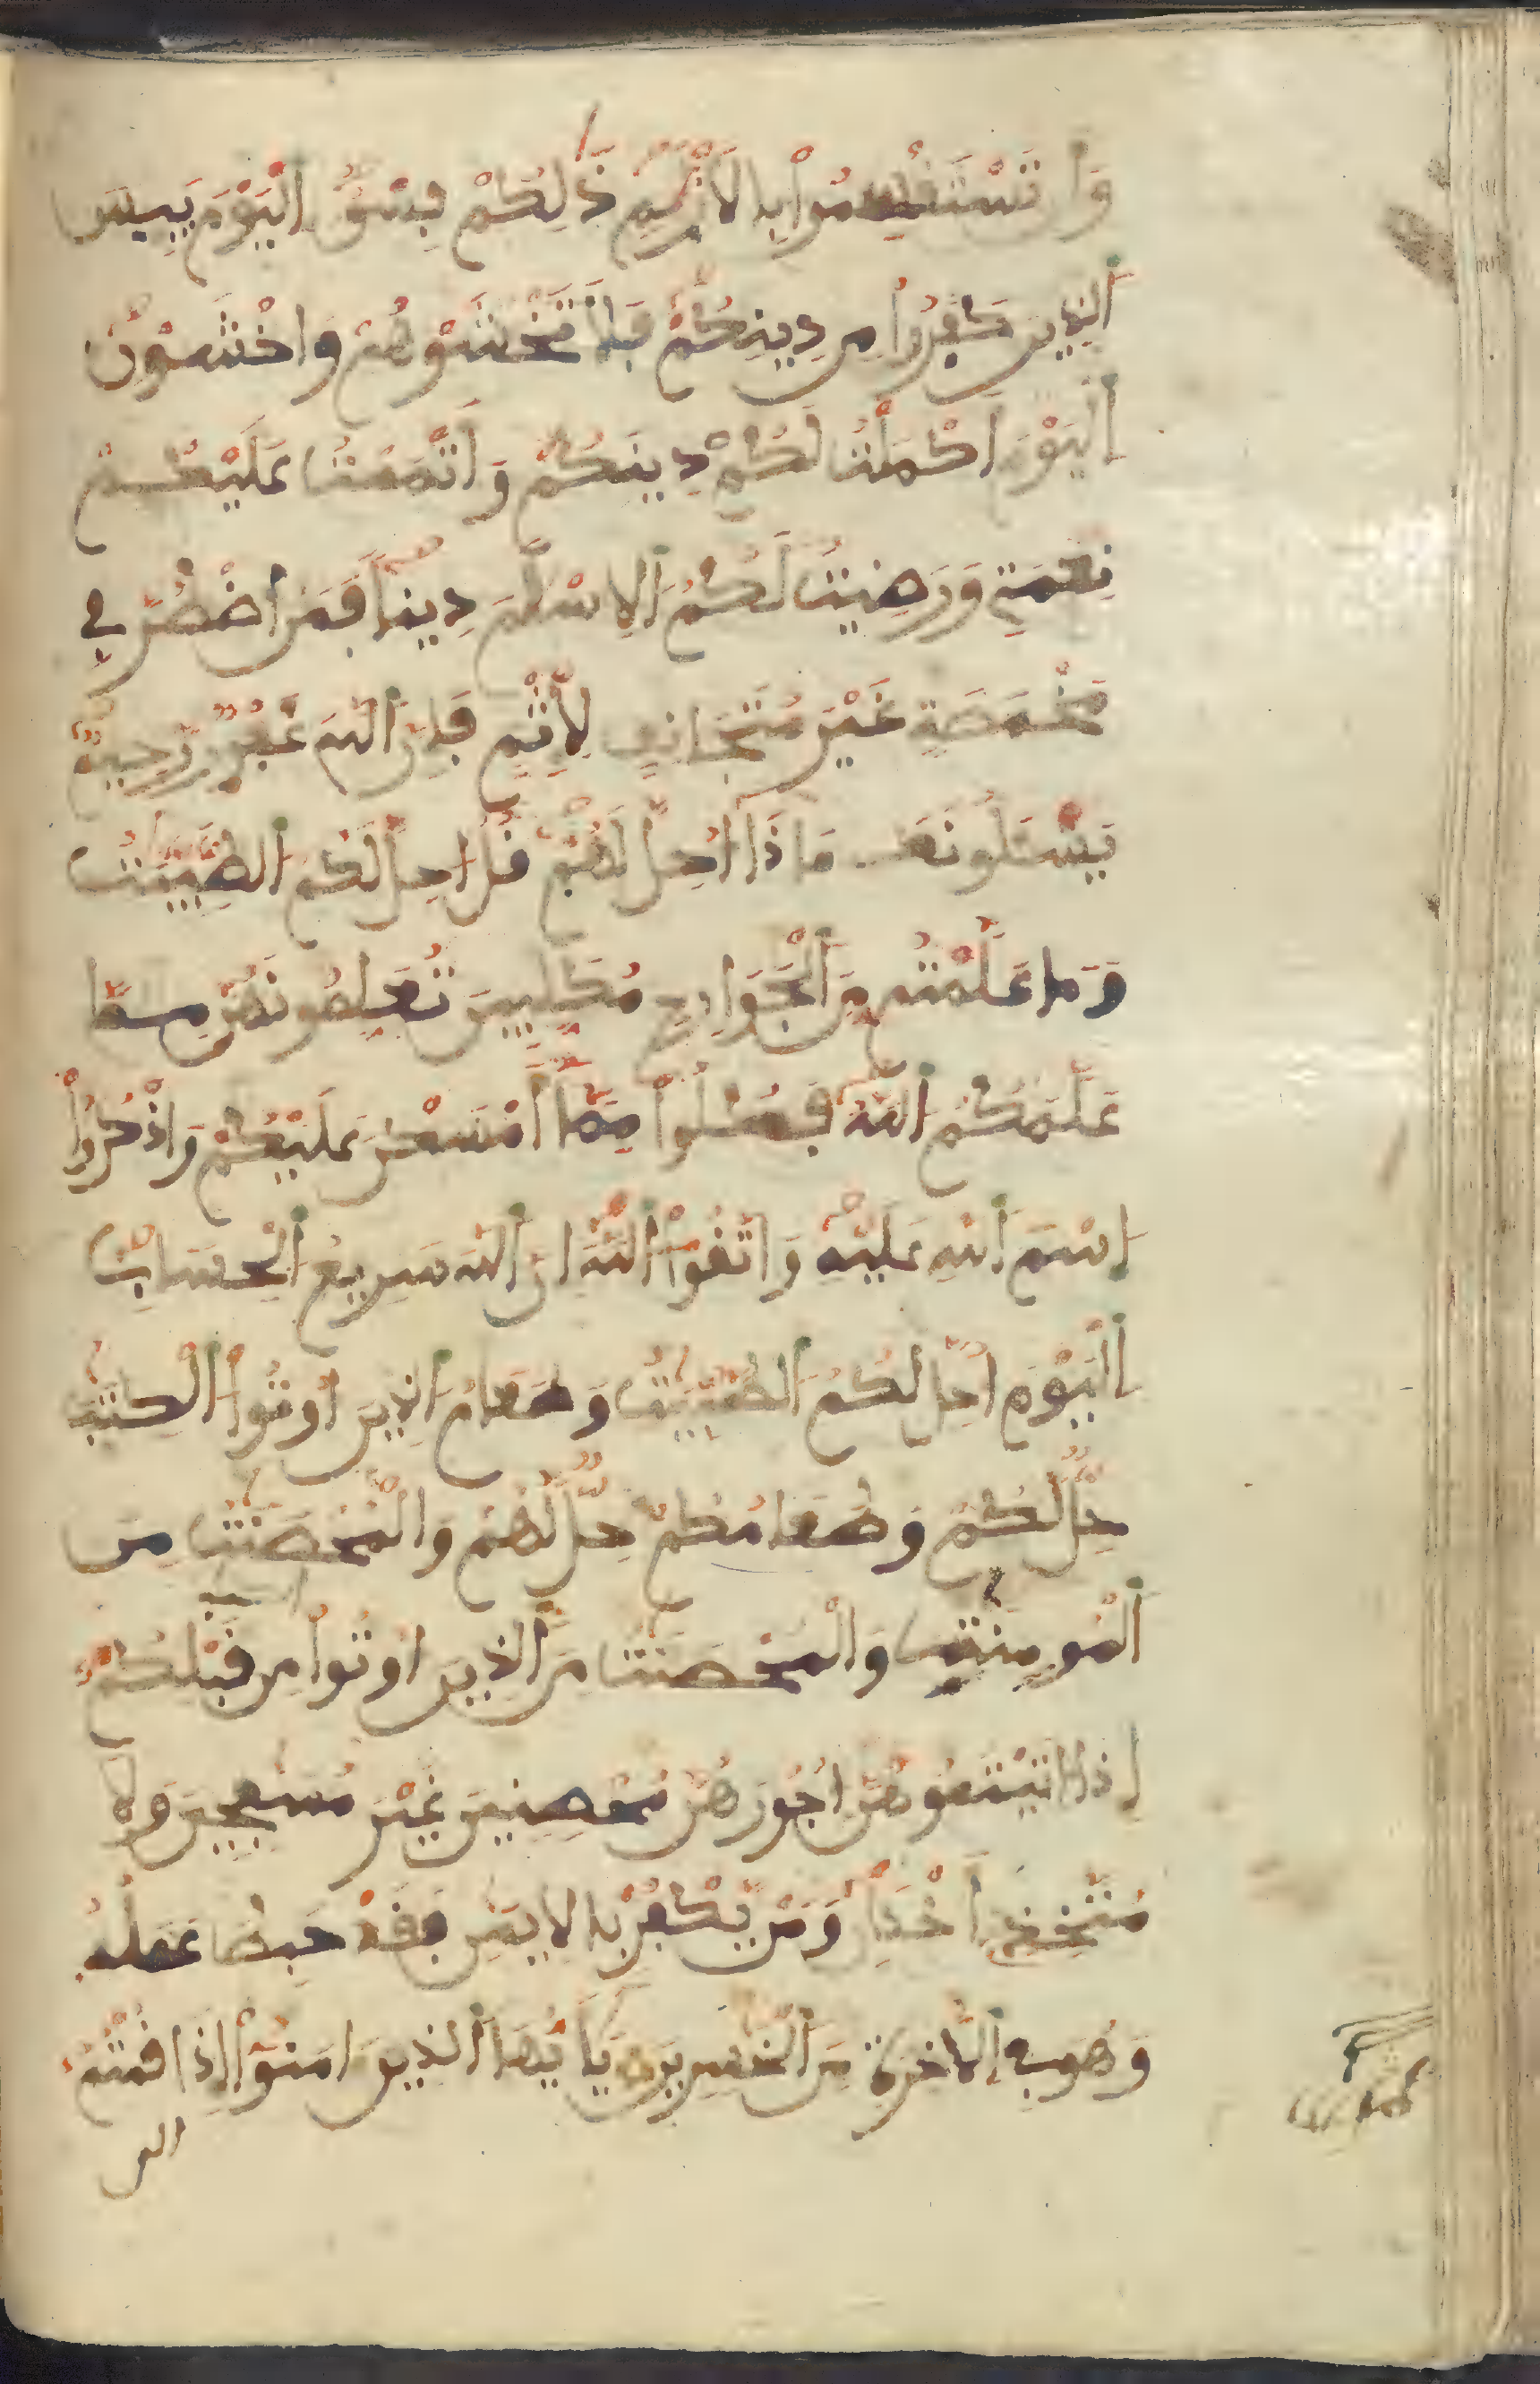 وَأَن تَسْتَقْسِمُوا بِالَازْلَٰمِ ذَٰلِكُمْ فِسْقٌ الْيَوْمَ يَيِسَ
الذِينَ كَفَرُوا مِن دِينِكُمْ فَلَا تَخْشَوْهُمْ وَاخْشَوْنِ
الْيَوْمَ أَكْمَلْتُ لَكُمْ دِينَكُمْ وَأَتْمَمْتُ عَلَيْكُمْ
نِعْمَتِي وَرَضِيتُ لَكُمُ الِاسْلَٰمَ دِينًا فَمَنُ اضْطُرَّ فِي
مَخْمَصَةٍ غَيْرَ مُتَجَانِفٍ لِإِثْمٍ فَإِنَّ اللَّهَ غَفُورٌ رَّحِيمٌ
يَسْـَٔلُونَكَ مَاذَا أُحِلَّ لَهُمْ قُلُ احِلَّ لَكُمُ الطَّيِّبَٰتُ
وَمَا عَلَّمْتُم مِّنَ الْجَوَارِحِ مُكَلِّبِينَ تُعَلِّمُونَهُنَّ مِمَّا
عَلَّمَكُمُ اللَّهُ فَكُلُوا مِمَّا أَمْسَكْنَ عَلَيْكُمْ وَاذْكُرُوا
اسْمَ اللَّهِ عَلَيْهِ وَاتَّقُوا اللَّهَ إِنَّ اللَّهَ سَرِيعُ الْحِسَابِ
الْيَوْمَ أُحِلَّ لَكُمُ الطَّيِّبَٰتُ وَطَعَامُ الذِينَ أُوتُوا الْكِتَٰبَ
حِلٌّ لَّكُمْ وَطَعَامُكُمْ حِلٌّ لَّهُمْ وَالْمُحْصَنَٰتُ مِنَ
الْمُومِنَٰتِ وَالْمُحْصَنَٰتُ مِنَ الذِينَ أُوتُوا الكتب مِن قَبْلِكُمْ
إِذَا ءَاتَيْتُمُوهُنَّ أُجُورَهُنَّ مُحْصِنِينَ غَيْرَ مُسَٰفِحِينَ وَلَا
مُتَّخِذِي أَخْدَانٍ وَمَنْ يَّكْفُرْ بِالِايمَٰنِ فَقَدْ حَبِطَ عَمَلُهُ
وَهُوَ فِي الَاخِرَةِ مِنَ الْخَٰسِرِينَ يَٰأَيُّهَا الذِينَ ءَامَنُوا إِذَا قُمْتُمُ
الى